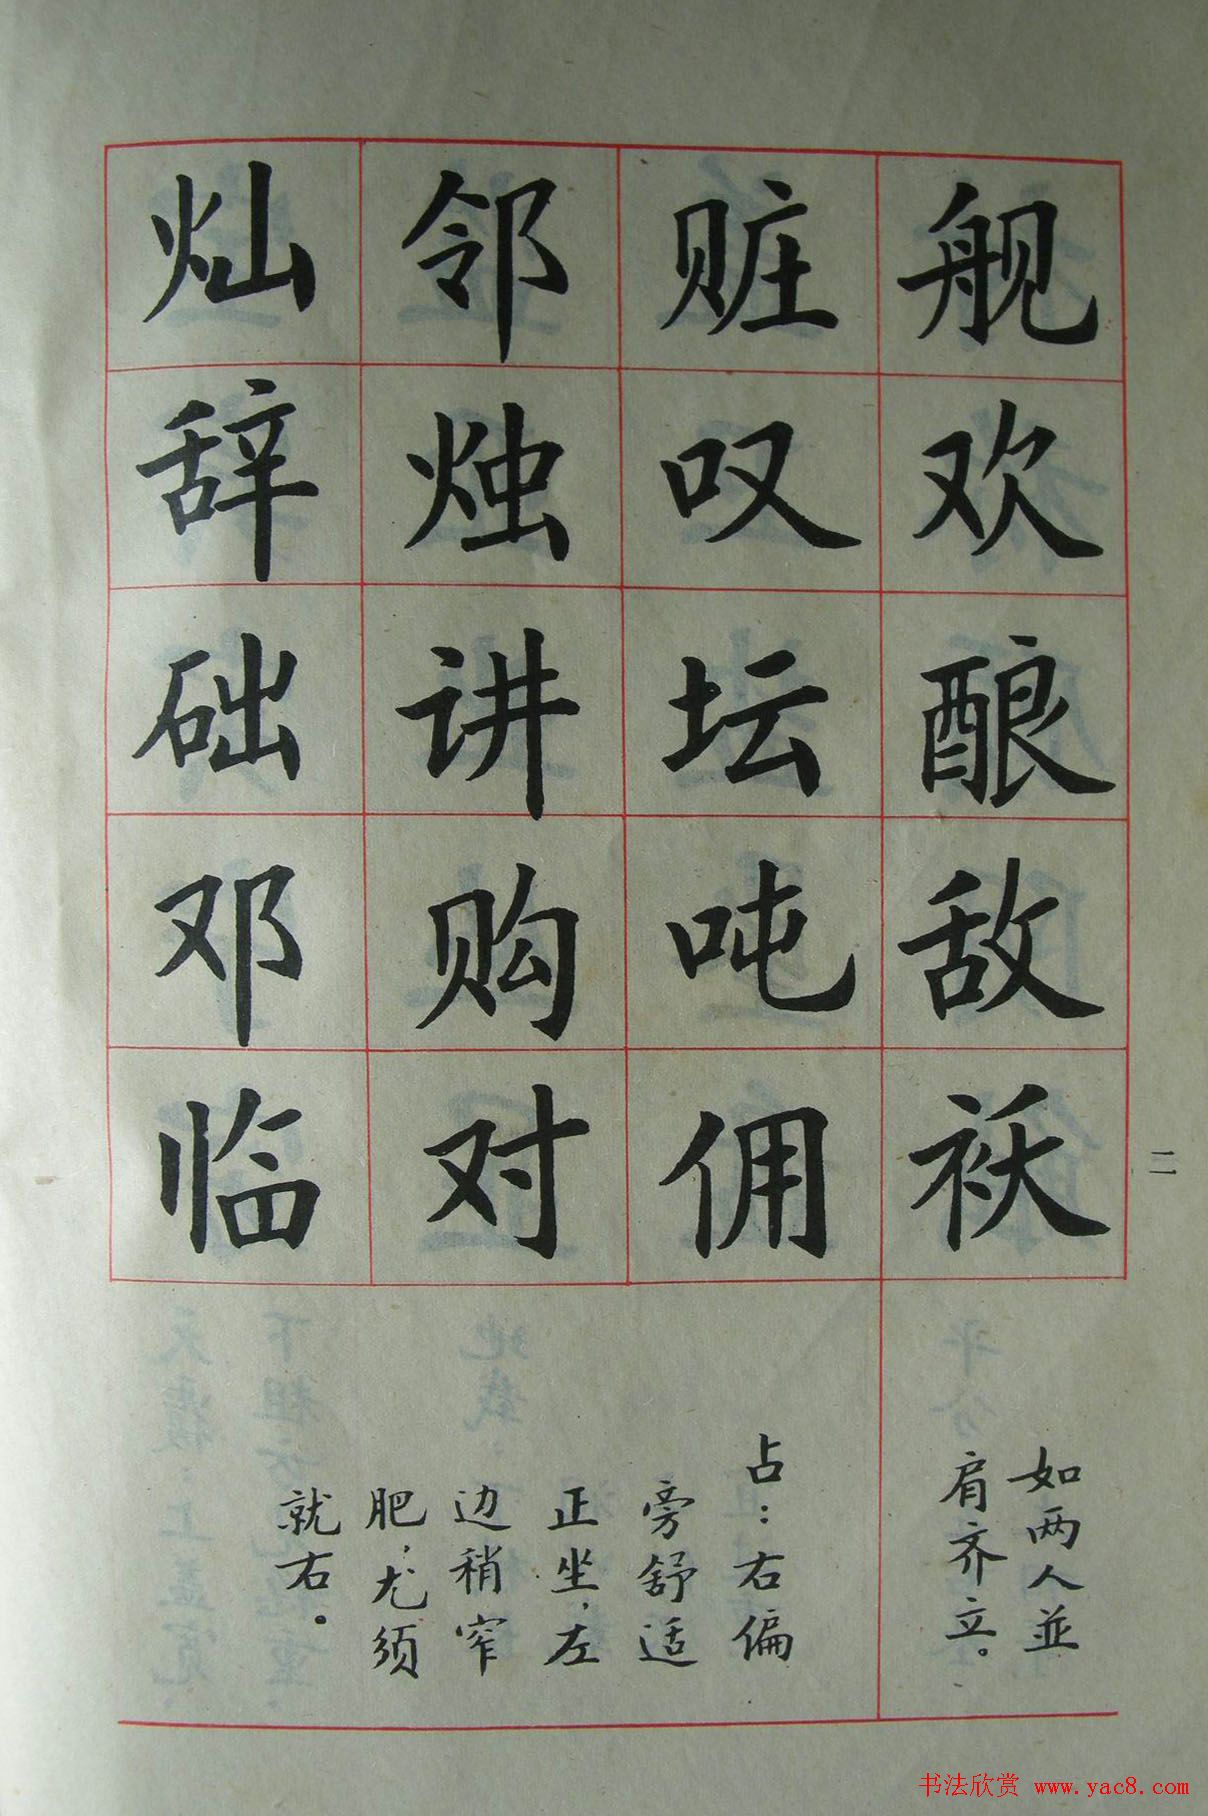 舰欢酿敌袄
赃叹坛吨佣
邻烛讲购对
灿辞础邓临
二
如两人並
肩齐立。
占：右偏
旁舒适
正坐，左
边稍窄
肥，尤须
就右。
书法欣赏 www.yac8.com